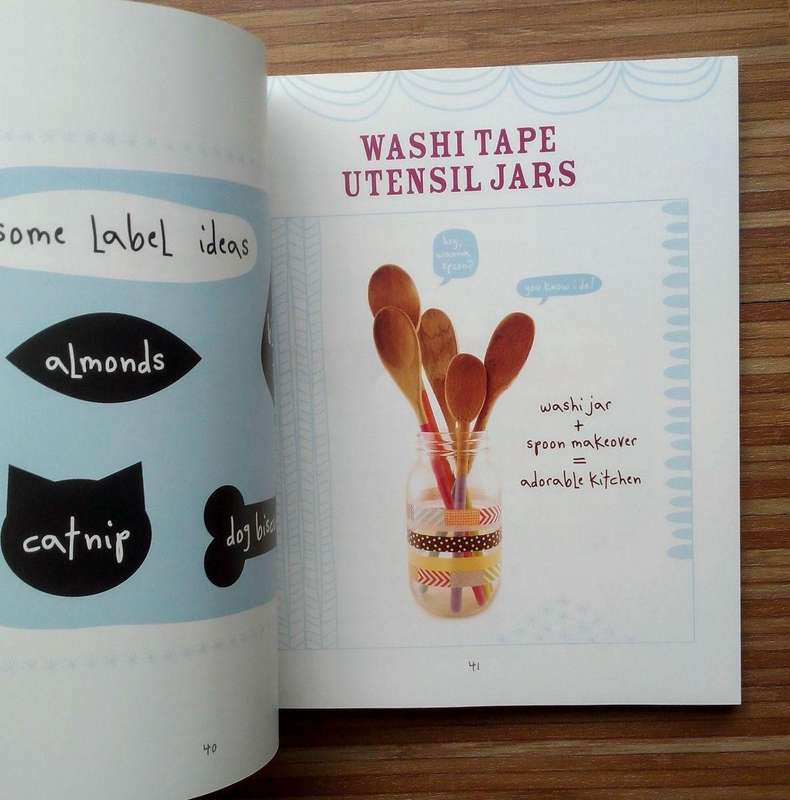 some label ideas
almonds
catnip
dog
40
WASHI TAPE
UTENSIL JARS
hey,
wanna
spoon?
you know i do!
washi jar
+
spoon makeover
=
adorable kitchen
41